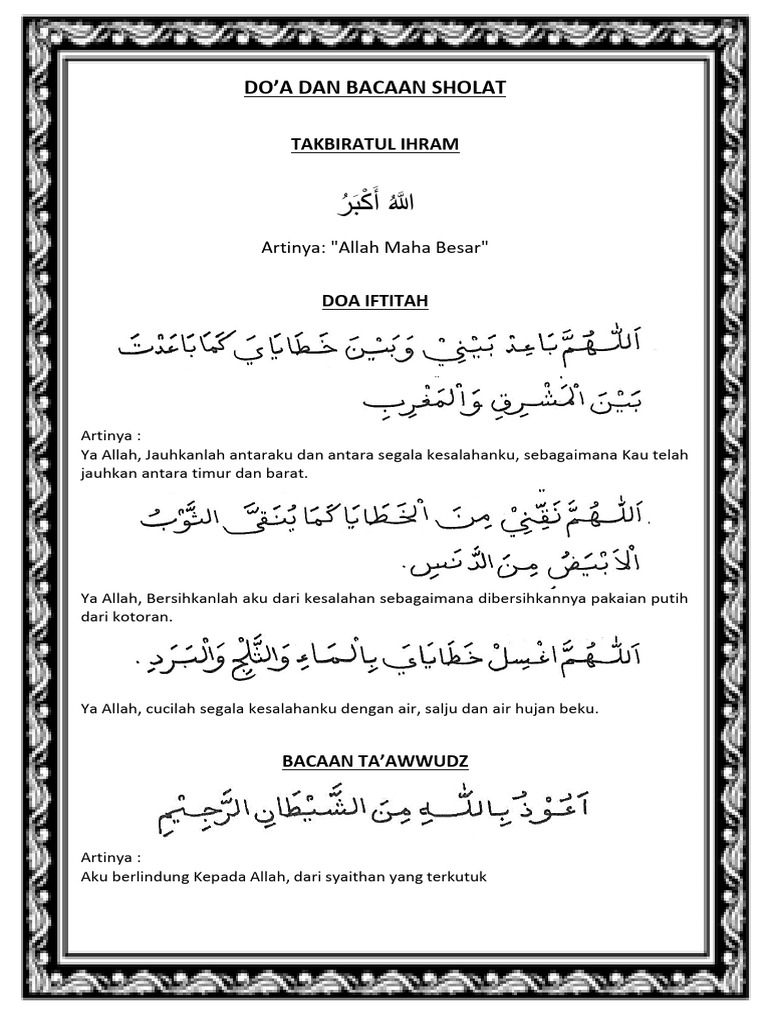 DO'A DAN BACAAN SHOLAT
TAKBIRATUL IHRAM
اللهُ أَكْبَرُ
Artinya: "Allah Maha Besar"
DOA IFTITAH
اَللّٰهُمَّ بَاعِدْ بَيْنِيْ وَبَيْنَ خَطَايَايَ كَمَا بَاعَدْتَ
بَيْنَ الْمَشْرِقِ وَالْمَغْرِبِ
Artinya :
Ya Allah, Jauhkanlah antaraku dan antara segala kesalahanku, sebagaimana Kau telah
jauhkan antara timur dan barat.
اَللّٰهُمَّ نَقِّنِيْ مِنَ الْخَطَايَا كَمَا يُنَقَّى الثَّوْبُ
الْاَبْيَضُ مِنَ الدَّنَسِ.
Ya Allah, Bersihkanlah aku dari kesalahan sebagaimana dibersihkannya pakaian putih
dari kotoran.
اَللّٰهُمَّ اغْسِلْ خَطَايَايَ بِالْمَاءِ وَالثَّلْجِ وَالْبَرَدِ.
Ya Allah, cucilah segala kesalahanku dengan air, salju dan air hujan beku.
BACAAN TA'AWWUDZ
اَعُوْذُ بِاللّٰهِ مِنَ الشَّيْطَانِ الرَّجِيْمِ
Artinya :
Aku berlindung Kepada Allah, dari syaithan yang terkutuk